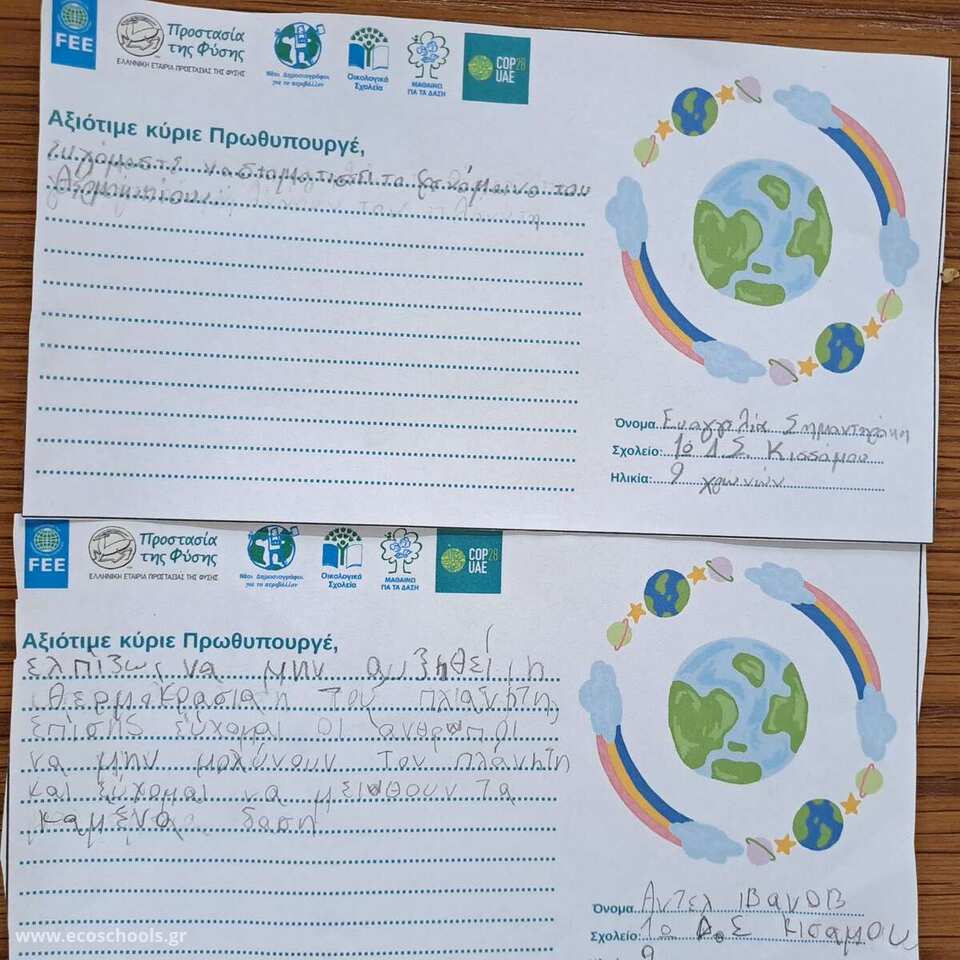 FEE
Προστασία
της Φύσης
ΕΛΛΗΝΙΚΗ ΕΤΑΙΡΙΑ ΠΡΟΣΤΑΣΙΑΣ ΤΗΣ ΦΥΣΗΣ
Νέοι Δημοσιογράφοι
για το περιβάλλον
Οικολογικά
Σχολεία
ΜΑΘΑΙΝΩ
ΓΙΑ ΤΑ ΔΑΣΗ
COP28
UAE
Αξιότιμε κύριε Πρωθυπουργέ,
να σταματίσει το φενόμενο του
θερμοκηπίου
Όνομα Ευαγγελία
Σχολείο: 1ο Δ.Σ. Κισσάμου
Ηλικία: 9 χρωνών
FEE
Προστασία
της Φύσης
ΕΛΛΗΝΙΚΗ ΕΤΑΙΡΙΑ ΠΡΟΣΤΑΣΙΑΣ ΤΗΣ ΦΥΣΗΣ
Νέοι Δημοσιογράφοι
για το περιβάλλον
Οικολογικά
Σχολεία
ΜΑΘΑΙΝΩ
ΓΙΑ ΤΑ ΔΑΣΗ
COP28
UAE
Αξιότιμε κύριε Πρωθυπουργέ,
ελπίζω να μην αυξηθεί η
θερμοκρασία του πλανήτη,
επίσης εύχομαι οι ανθρωποι
να μην μολύνουν τον πλανήτη
και εύχομαι να μειωθουν τα
καμένα δαση
Όνομα Αντελ Ιβανοβ
Σχολείο: 1ο Δ.Σ Κισαμου
9
www.ecoschools.gr